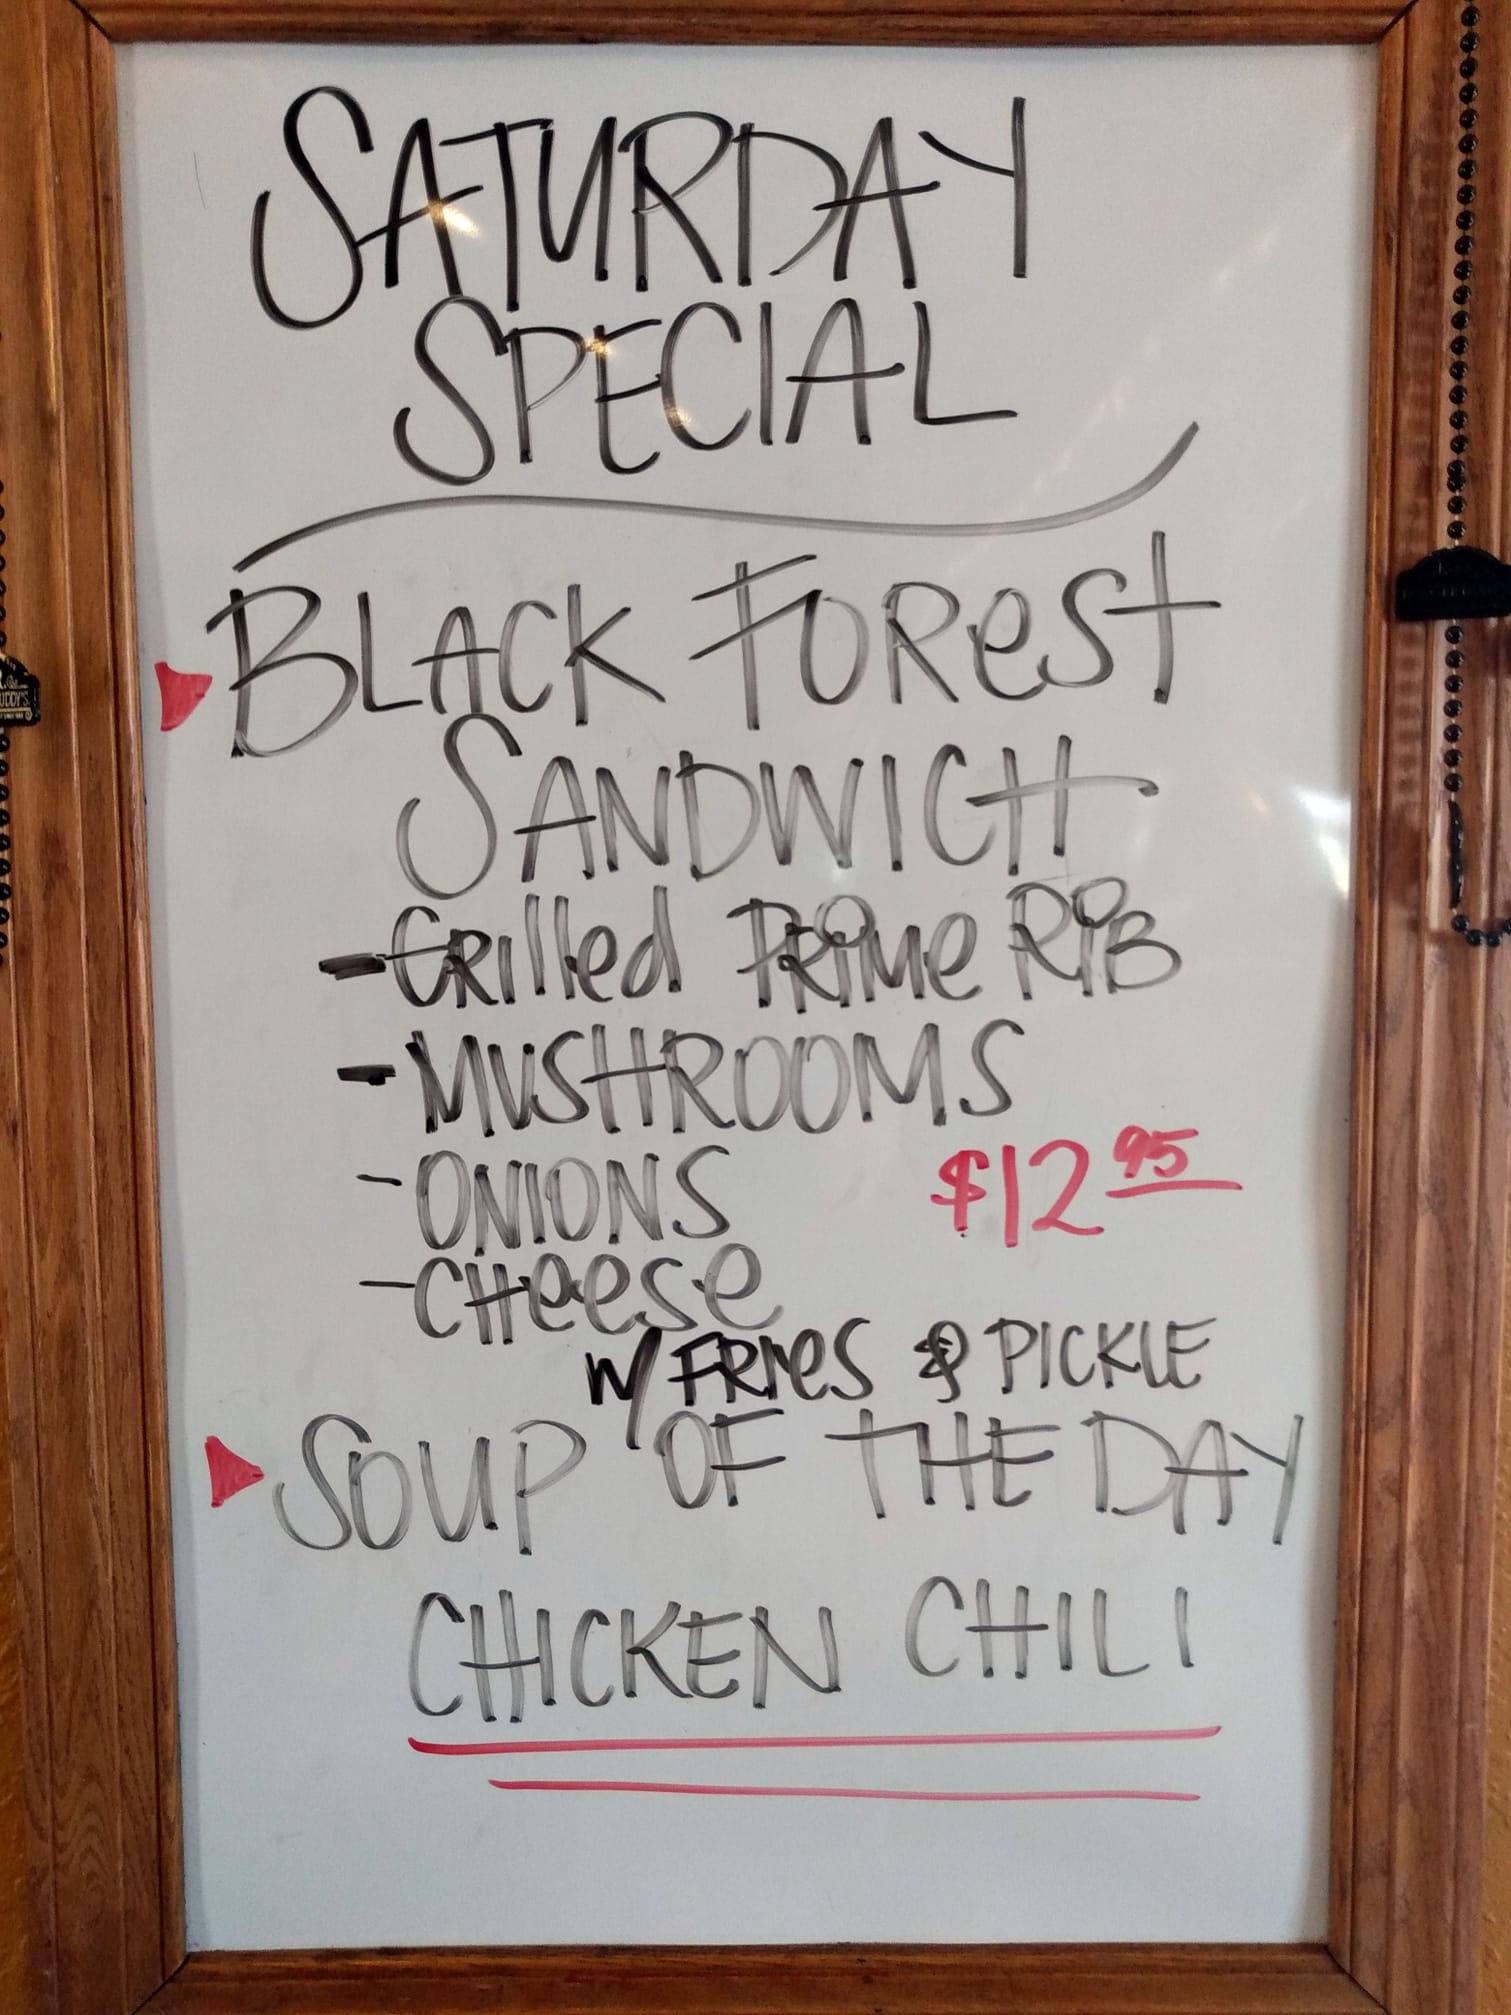 SATURDAY
SPECIAL
BLACK FOREST
SANDWICH
- GRilled PRiMe RiB
- MUSHROOMS
- ONIONS $12 95
- CHeese
W/ FRIeS & PICKLE
SOUP OF THE DAY
CHICKEN CHILI